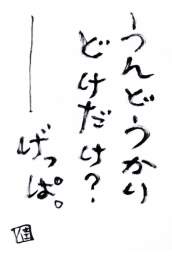 うんどうかい
どけだけ？
——げっぱ。